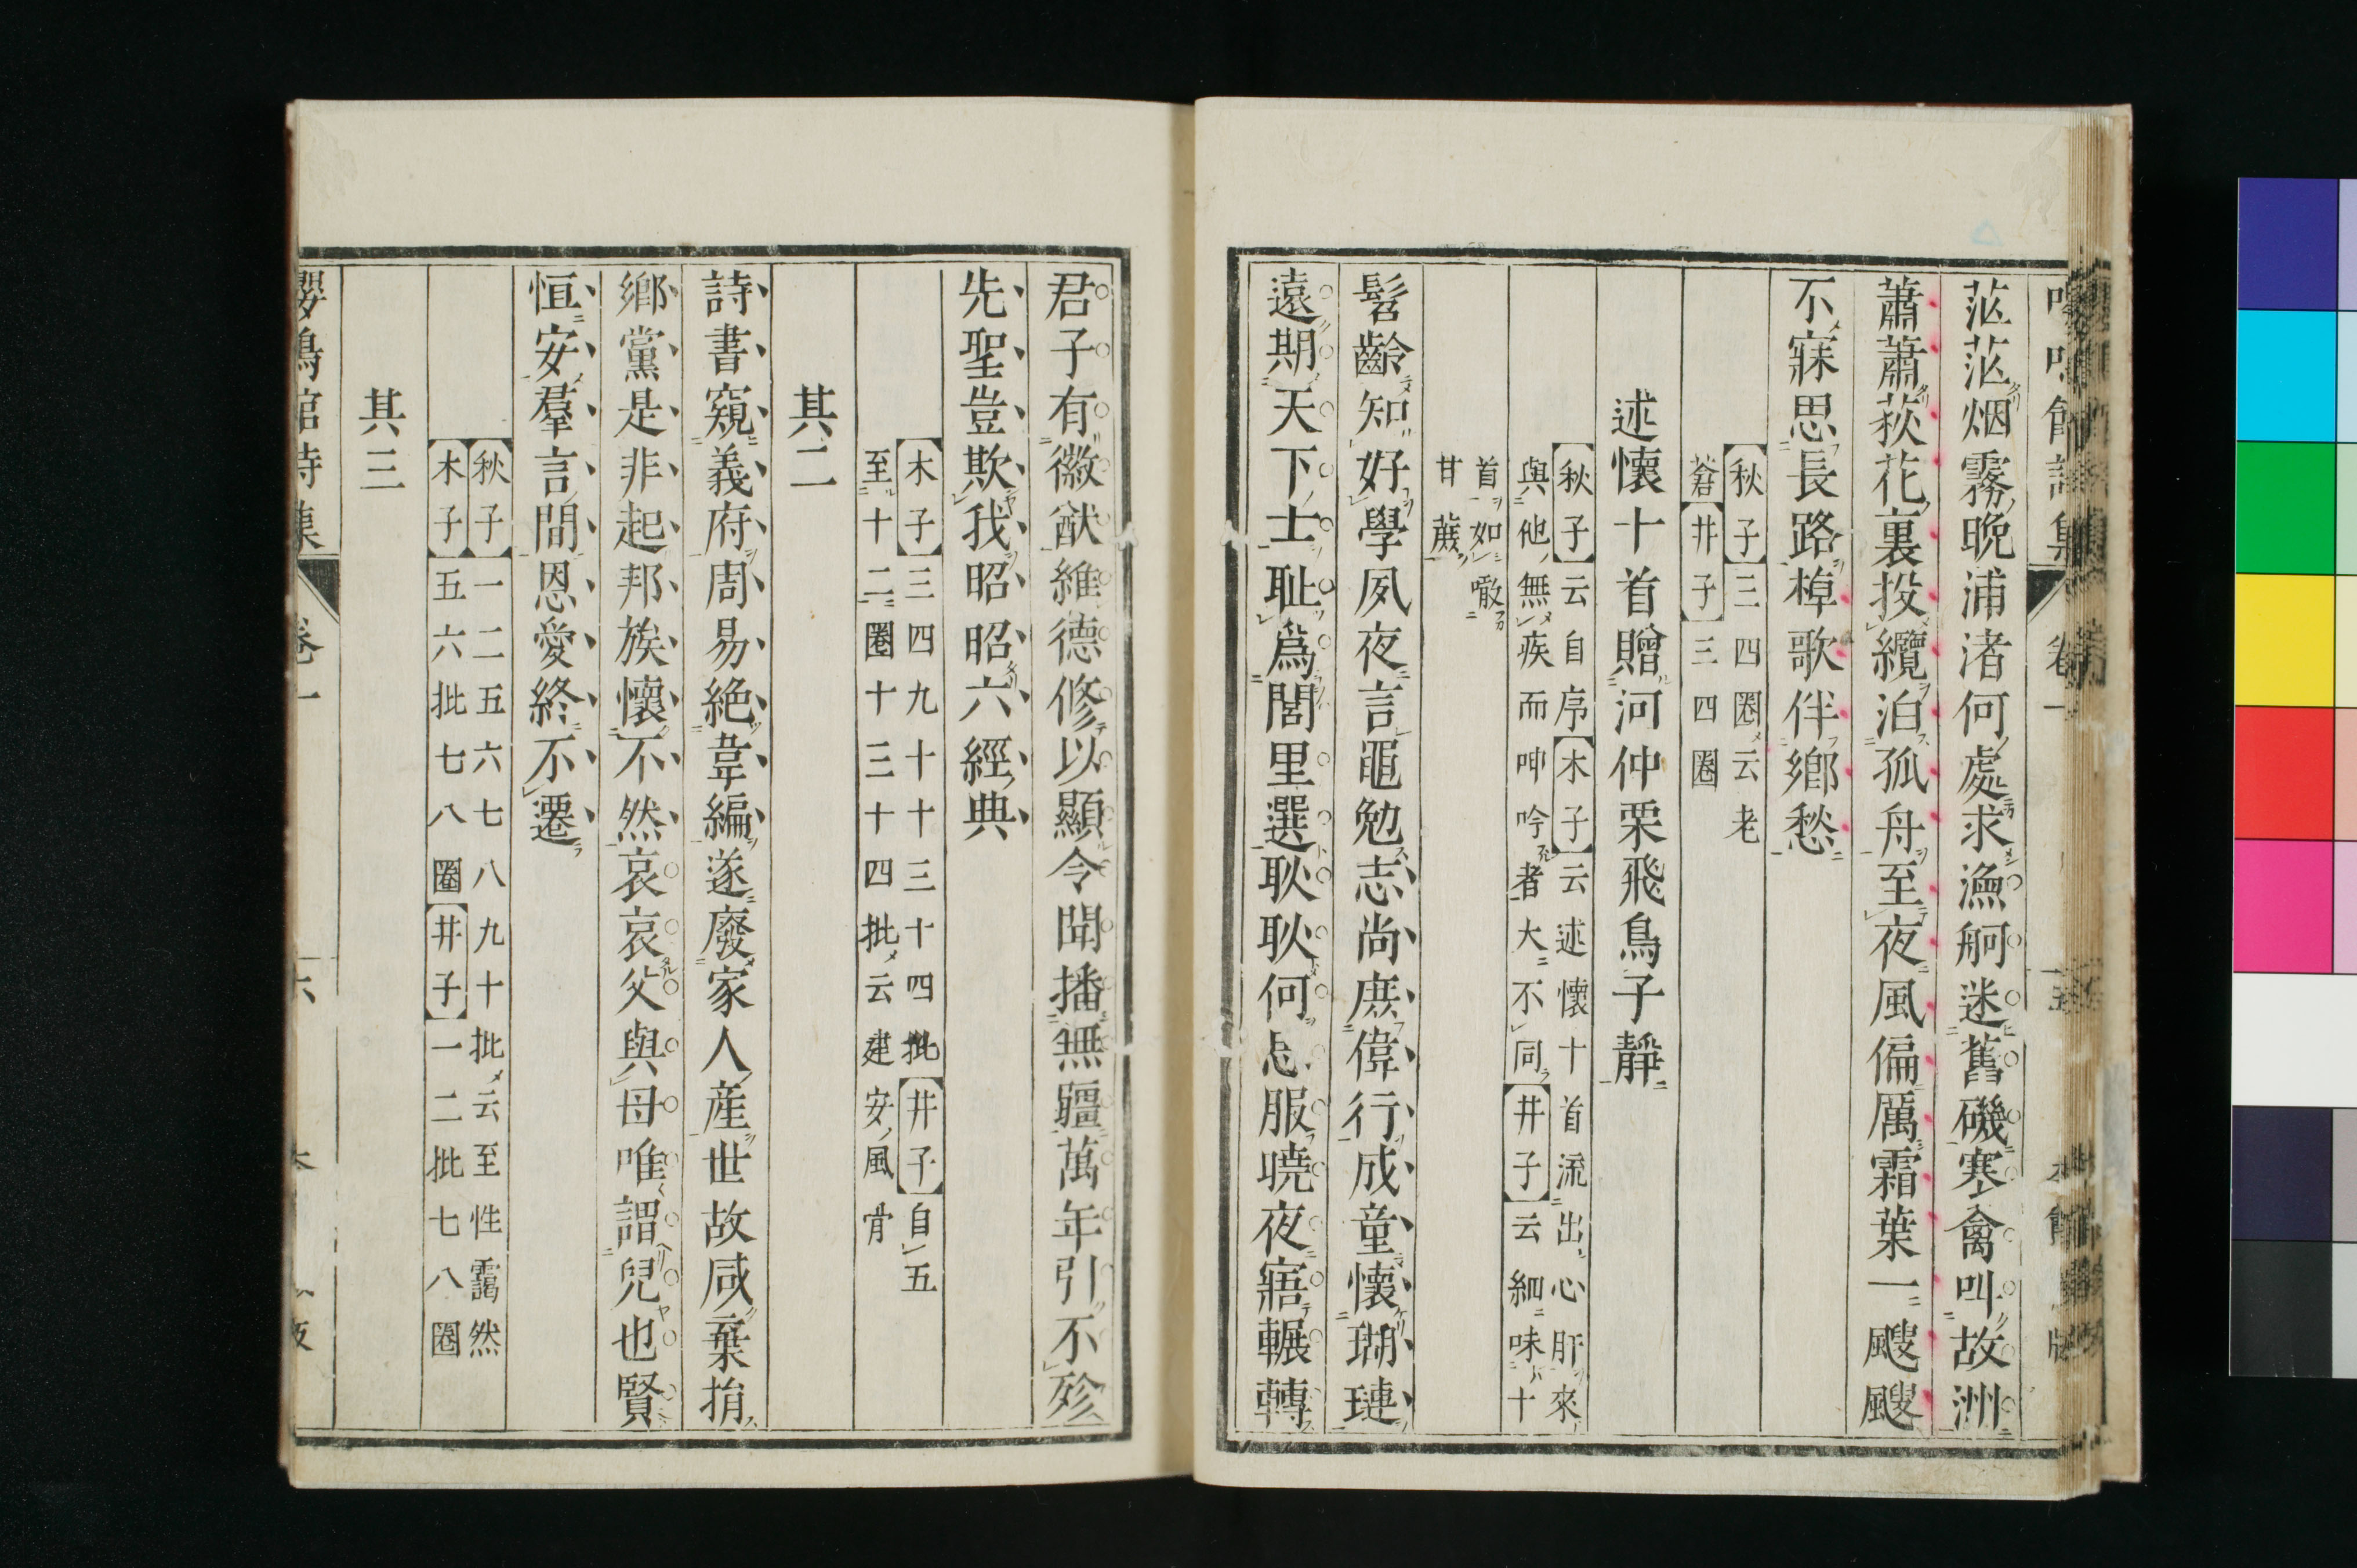 茫茫烟霧晩浦渚何處求漁舸迷舊磯寒禽叫故洲
蕭蕭荻花裏投纜泊孤舟至夜風偏厲霜葉一颼颼
不寐思長路棹歌伴鄉愁
【秋子】三四圈云老
蒼【井子】三四圈
述懷十首贈河仲栗飛鳥子靜
【秋子】云自序【木子】云述懷十首流出心肝來
與他無疾而呻吟者大不同【井子】云細味十
首如噉
甘蔗
髫齡知好學夙夜言黽勉志尚庶偉行成童懷瑚璉
遠期天下士耻爲閭里選耿耿何忘服曉夜寤輾轉
君子有徽猷維德修以顯令聞播無疆萬年引不殄
先聖豈欺我昭昭六經典
【木子】三四九十十三十四批【井子】自五
至十二圈十三十四批云建安風骨
其二
詩書窺義府周易絶韋編遂廢家人產世故咸棄捐
鄉黨是非起邦族懷不然哀哀父與母唯謂兒也賢
恒安羣言間恩愛終不遷
【秋子】一二五六七八九十批云至性靄然
【木子】五六批七八圈【井子】一二批七八圈
其三
嚶鳴館詩集 卷一 六